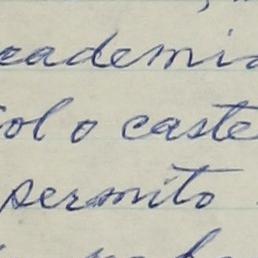 cademia
ol o caste
permito